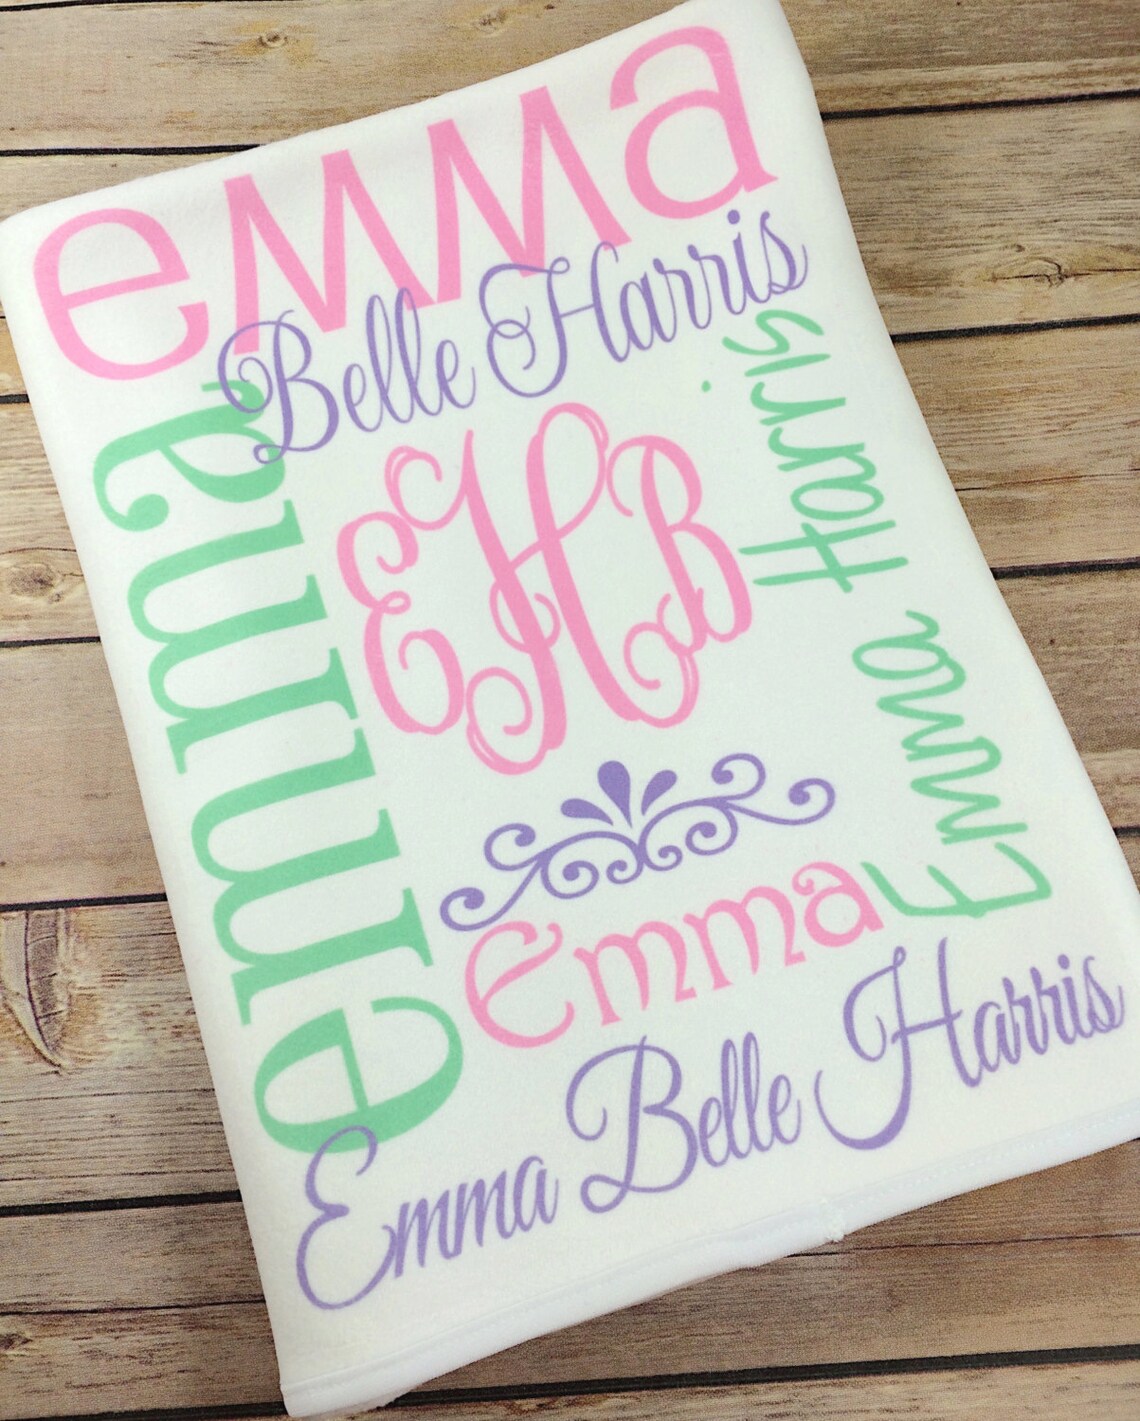 emma
Belle Harris
emma
EHB
Emma Harris
Emma
Emma Belle Harris